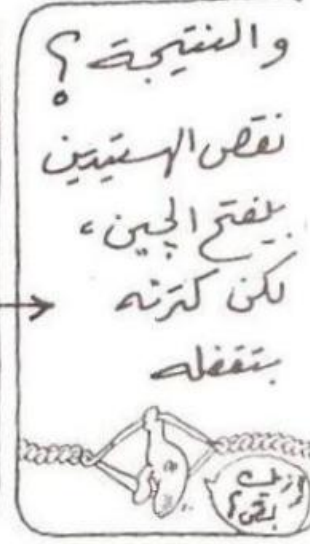 والنتيجة؟
نقص الهستيدين
بيفتح الچين،
لكن كترته
بتقفله
إزيك
بقى؟